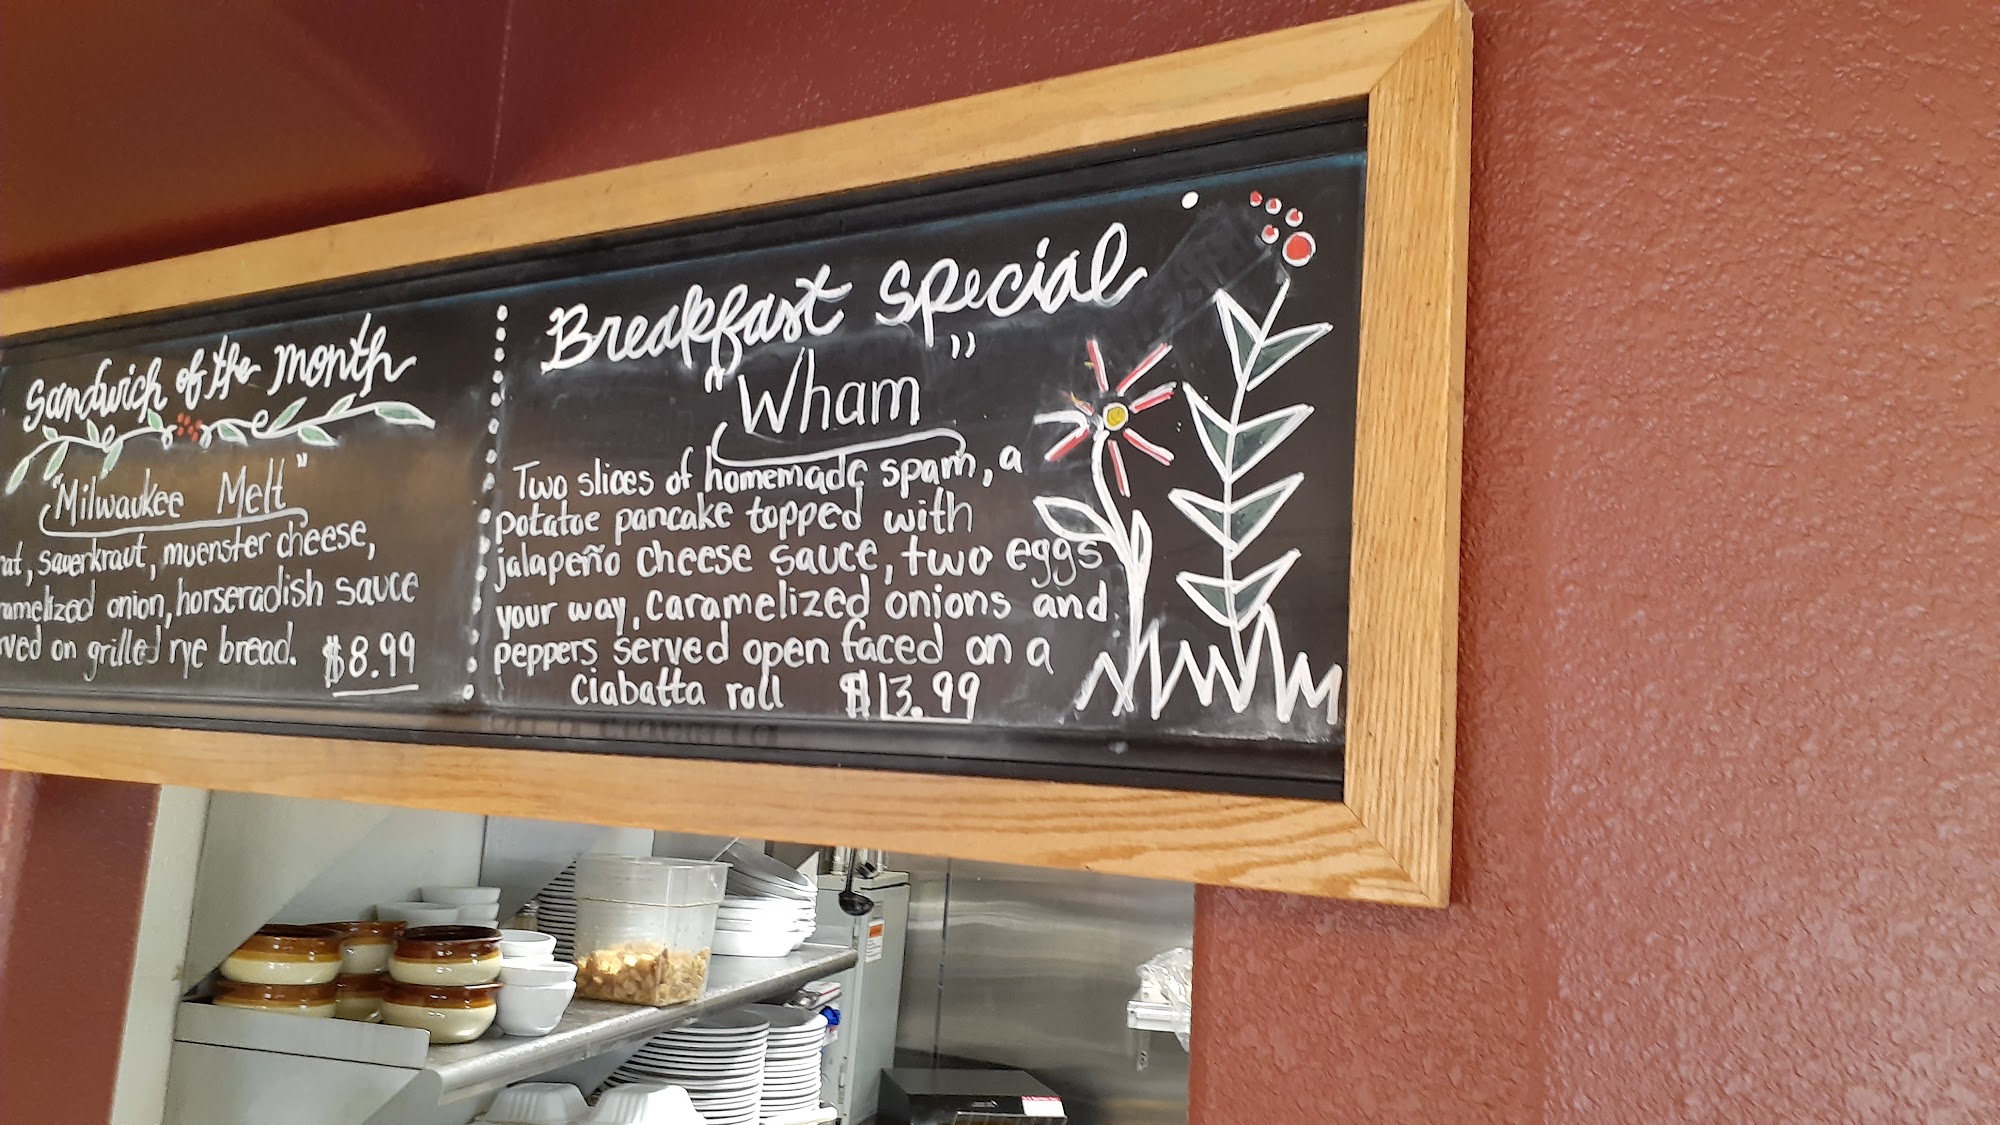 Sandwich of the month
"Milwaukee Melt"
sauerkraut, muenster cheese,
onion, horseradish sauce
on grilled rye bread. $8.99
Breakfast Special
"Wham"
Two slices of homemade spam, a
potatoe pancake topped with
jalapeño cheese sauce, two eggs
your way, caramelized onions and
peppers served open faced on a
ciabatta roll $13.99